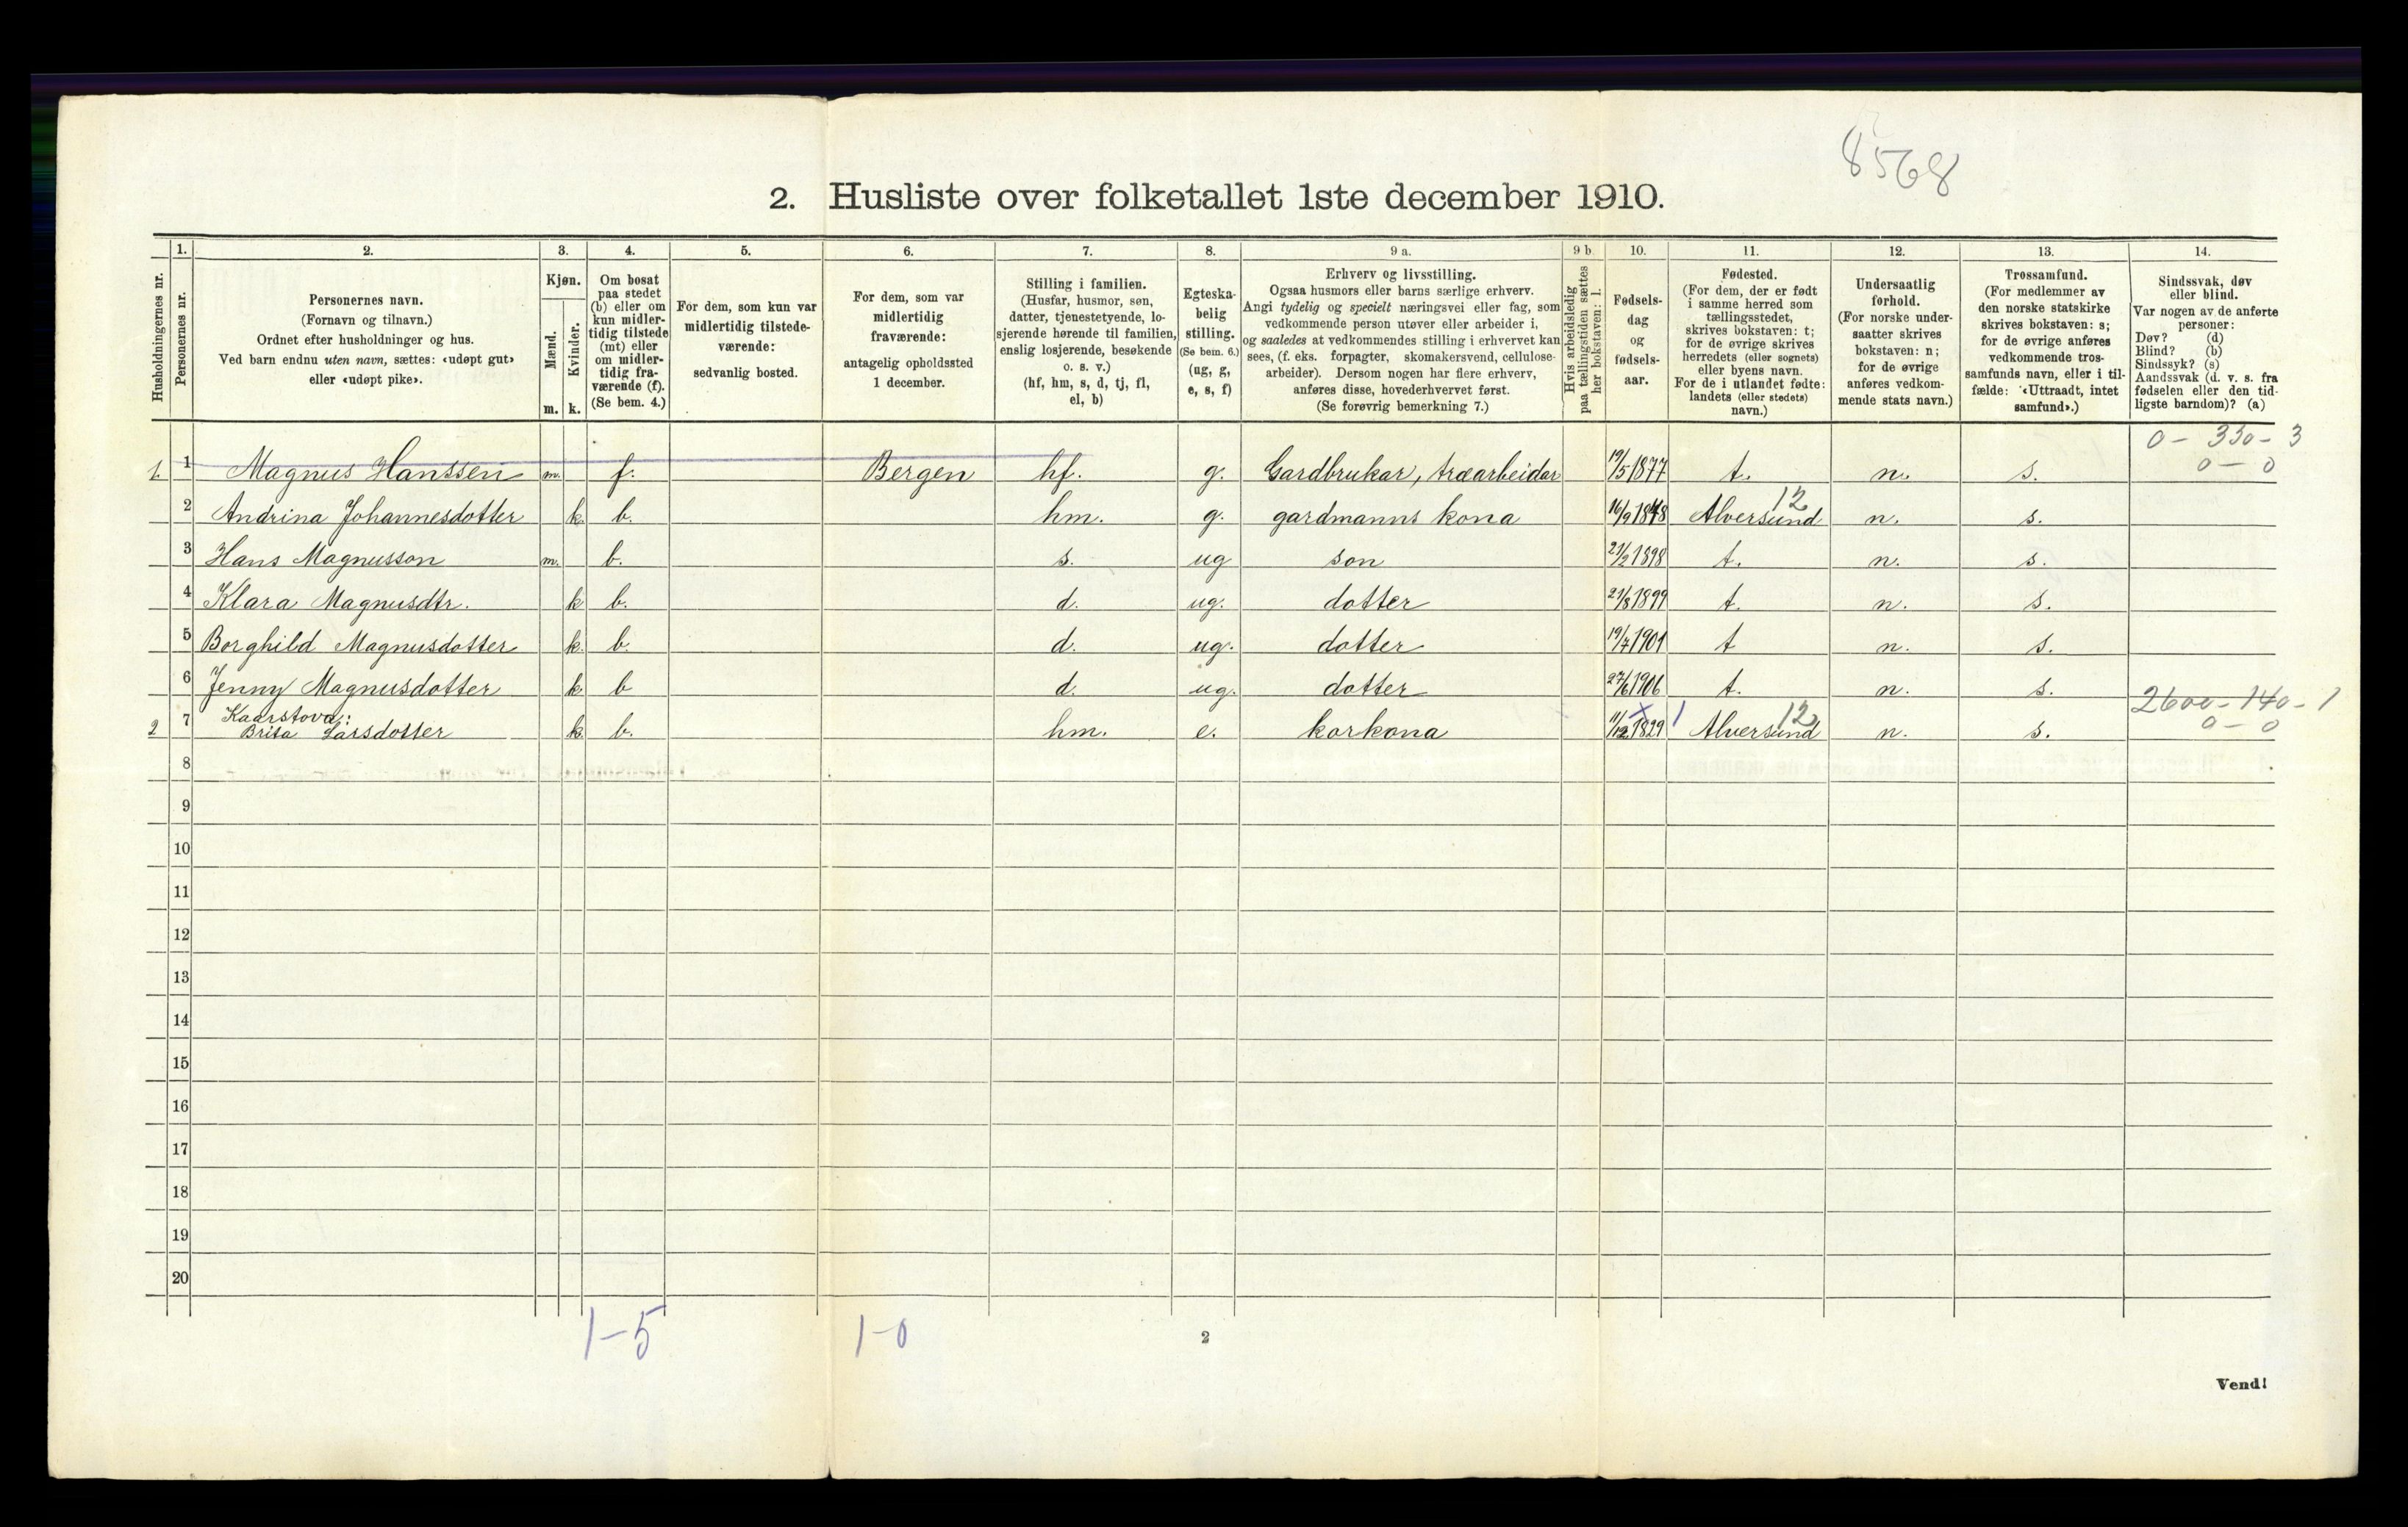 8568
2. Husliste over folketallet 1ste december 1910.
Husholdningernes nr.
1.
Personernes nr.
2.
Personernes navn.
(Fornavn og tilnavn.)
Ordnet efter husholdninger og hus.
Ved barn endnu uten navn, sættes: «udøpt gut»
eller «udøpt pike».
3.
Kjøn.
Mænd.
m.
Kvinder.
k.
4.
Om bosat
paa stedet
(b) eller om
kun midler-
tidig tilstede
(mt) eller
om midler-
tidig fra-
værende (f).
(Se bem. 4.)
5.
For dem, som kun var
midlertidig tilstede-
værende:
sedvanlig bosted.
6.
For dem, som var
midlertidig
fraværende:
antagelig opholdssted
1 december.
7.
Stilling i familien.
(Husfar, husmor, søn,
datter, tjenestetyende, lo-
sjerende hørende til familien,
enslig losjerende, besøkende
o. s. v.)
(hf, hm, s, d, tj, fl,
el, b)
8.
Egteska-
belig
stilling.
(Se bem. 6.)
(ug, g,
e, s, f)
9 a.
Erhverv og livsstilling.
Ogsaa husmors eller barns særlige erhverv.
Angi tydelig og specielt næringsvei eller fag, som
vedkommende person utøver eller arbeider i,
og saaledes at vedkommendes stilling i erhvervet kan
sees, (f. eks. forpagter, skomakersvend, cellulose-
arbeider). Dersom nogen har flere erhverv,
anføres disse, hovederhvervet først.
(Se forøvrig bemerkning 7.)
9 b
Hvis arbeidsledig
paa tællingstiden sættes
her bokstaven: l.
10.
Fødsels-
dag
og
fødsels-
aar.
11.
Fødested.
(For dem, der er født
i samme herred som
tællingsstedet,
skrives bokstaven: t;
for de øvrige skrives
herredets (eller sognets)
eller byens navn.
For de i utlandet fødte:
landets (eller stedets)
navn.)
12.
Undersaatlig
forhold.
(For norske under-
saatter skrives
bokstaven: n;
for de øvrige
anføres vedkom-
mende stats navn.)
13.
Trossamfund.
(For medlemmer av
den norske statskirke
skrives bokstaven: s;
for de øvrige anføres
vedkommende tros-
samfunds navn, eller i til-
fælde: «Uttraadt, intet
samfund».)
14.
Sindssvak, døv
eller blind.
Var nogen av de anførte
personer:
Døv? (d)
Blind? (b)
Sindssyk? (s)
Aandssvak (d. v. s. fra
fødselen eller den tid-
ligste barndom)? (a)
0 - 330 - 3
0 - 0
1. 1 Magnus Hanssen m. f. Bergen hf. g. Gardbrukar, træarbeidar 19/5 1877 t. n. s.
12
2 Andrina Johannesdotter k. b. hm. g. gardmanns kona 16/9 Alversund n. s.
3 Hans Magnusson m. b. s. ug son 21/2 1898 t. n. s.
4 Klara Magnusdtr. k b. d. ug. dotter 21/8 1899 t. n. s.
5 Borghild Magnusdotter k. b. d. ug. dotter 19/7 1901 t n. s.
6 Jenny Magnusdotter k. b d. ug. dotter 27/6 1906 t. n. s.
2600 - 140 - 1
0 - 0
Kaarstova:
x 1 12
2 7 Brita Larsdotter k. b. hm. e. korkona 11/12 1829 Alversund n. s.
8
9
10
11
12
13
14
15
16
17
18
19
20
1-5 1-0
2
Vend!